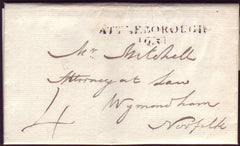 ATTLEBOROUGH
Mr. Mitchell
Attorney at Law
4
Wymondham
Norfolk